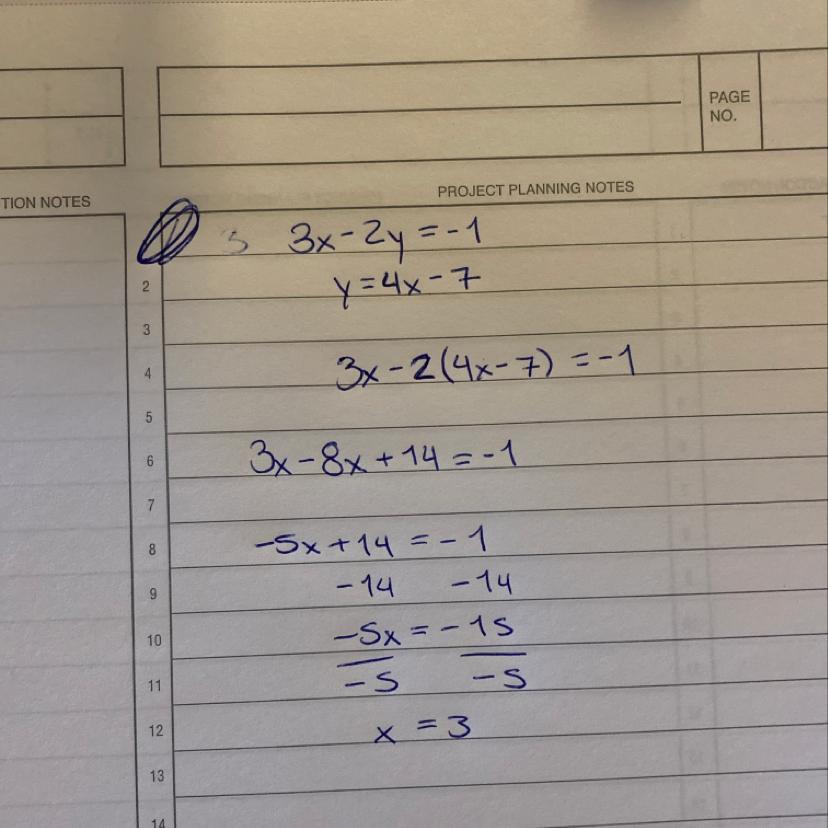 PAGE
NO.
TION NOTES
PROJECT PLANNING NOTES
3x-2y=-1
2 y=4x-7
3
4 3x-2(4x-7)=-1
5
6 3x-8x+14=-1
7
8 -5x+14=-1
9 -14 -14
10 -5x=-15
11 -5 -5
12 x=3
13
14